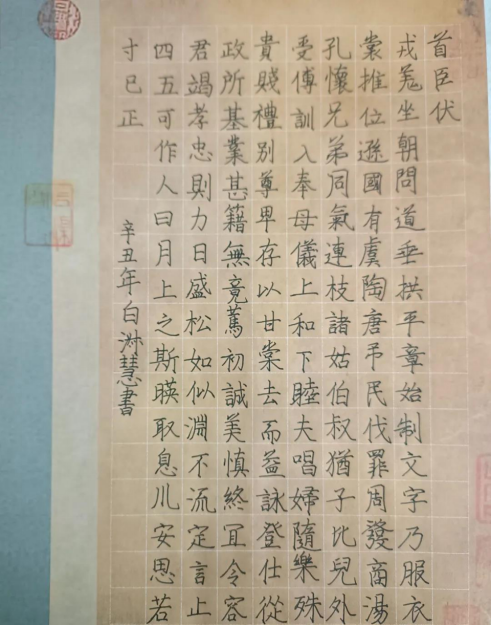 首臣伏
戎羌坐朝問道垂拱平章始制文字乃服衣
裳推位遜國有虞陶唐弔民伐罪周發商湯
孔懷兄弟同氣連枝諸姑伯叔猶子比兒外
受傅訓入奉母儀上和下睦夫唱婦隨樂殊
貴賤禮別尊卑存以甘棠去而益詠登仕從
政所基業甚籍無竟篤初誠美慎終宜令容
君竭孝忠則力日盛松如似淵不流定言止
四五可作人曰月上之斯暎取息川安思若
寸已正
辛丑年白淑慧書